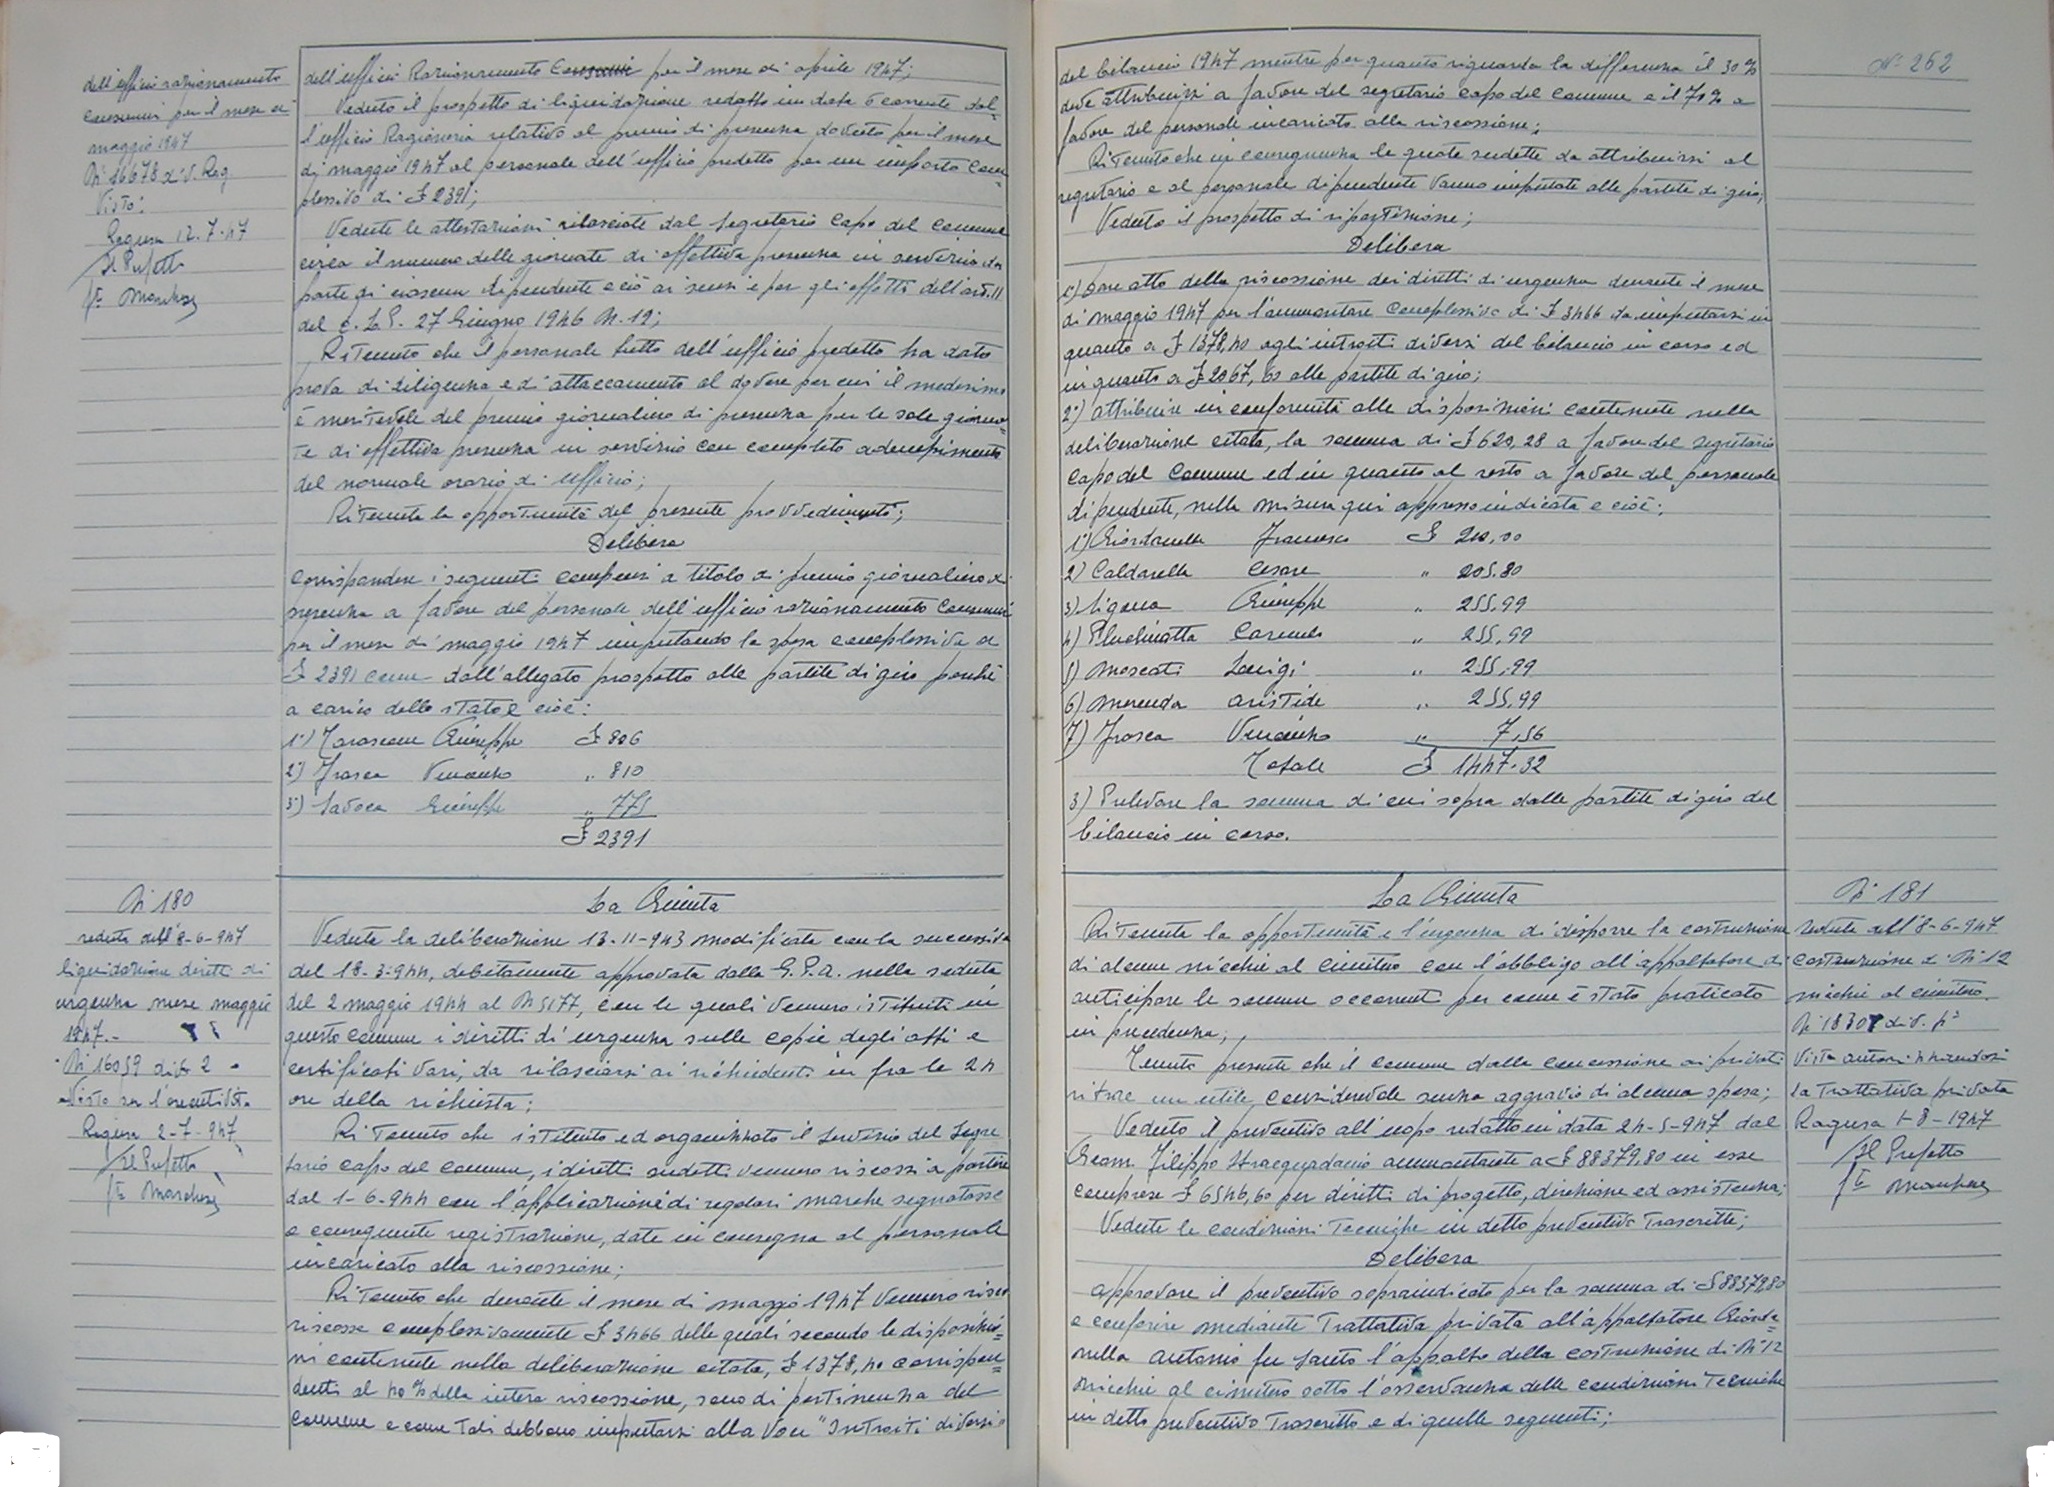 dell'ufficio razionamento
consumi per il mese di
maggio 1947
N° 16678 di V. Rag
Visto:
Ragusa 12-7-47
Il Prefetto
fto Marchese
dell'ufficio Razionamento Consumi per il mese di aprile 1947;
Veduto il prospetto di liquidazione redatto in data 6 corrente dal-
l'ufficio Ragioneria relativo al premio di presenza dovuto per il mese
di maggio 1947 al personale dell'ufficio predetto per un importo com-
plessivo di £ 2391;
Vedute le attestazioni rilasciate dal Segretario Capo del Comune
circa il numero delle giornate di effettiva presenza in servizio da
parte di ciascun dipendente e ciò ai sensi e per gli effetti dell'art. 11
del D. L. P. 27 Giugno 1946 N. 19;
Ritenuto che il personale tutto dell'ufficio predetto ha dato
prova di diligenza e di attaccamento al dovere per cui il medesimo
è meritevole del premio giornaliero di presenza per le sole giorna-
te di effettiva presenza in servizio con completo adempimento
del normale orario di ufficio;
Ritenuta la opportunità del presente provvedimento;
Delibera
Corrispondere i seguenti compensi a titolo di premio giornaliero di
presenza a favore del personale dell'ufficio razionamento Consumi
per il mese di maggio 1947 imputando la spesa complessiva di
£ 2391 come dall'allegato prospetto alle partite di giro perchè
a carico dello Stato e cioè:
1°) Tarascone Giuseppe £ 806
2°) Frasca Vincenzo " 810
3°) Savoca Giuseppe " 775
£ 2391
N° 180
seduta dell'8-6-947
liquidazione diritti di
urgenza mese maggio
1947.-
N° 16059 div 2
Visto per l'esecutività
Ragusa 2-7-947
Il Prefetto
fto Marchese
La Giunta
Veduta la deliberazione 13-11-943 modificata con la successiva
del 18-3-944, debitamente approvata dalla G.P.A. nella seduta
del 2 maggio 1944 al N 5177, con le quali vennero istituiti in
questo comune i diritti di urgenza sulle copie degli atti e
certificati vari, da rilasciarsi ai richiedenti in fra le 24
ore della richiesta;
Ritenuto che istituito ed organizzato il servizio del Segre
tario capo del comune, i diritti sudetti vennero riscossi a partire
dal 1-6-944 con l'applicazione di regolari marche segnatasse
e conseguente registrazione, date in consegna al personale
incaricato alla riscossione;
Ritenuto che durante il mese di maggio 1947 vennero risco
riscosse complessivamente £ 3466 delle quali secondo le disposizio-
ni contenute nella deliberazione citata, £ 1378,40 corrispon-
denti al 40% della intera riscossione, sono di pertinenza del
comune e come tali debbono imputarsi alla voce "Introiti diversi"
N° 262
del bilancio 1947 mentre per quanto riguarda la differenza il 30%
deve attribuirsi a favore del segretario capo del comune e il 70% a
favore del personale incaricato alla riscossione;
Ritenuto che in conseguenza le quote sudette da attribuirsi al
segretario e al personale dipendente vanno imputate alle partite di giro;
Veduto il prospetto di ripartizione;
Delibera
1°) Dare atto della riscossione dei diritti di urgenza durante il mese
di maggio 1947 per l'ammontare complessivo di £ 3466 da imputarsi in
quanto a £ 1378,40 agli introiti diversi del bilancio in corso ed
in quanto a £ 2067,60 alle partite di giro;
2°) Attribuire in conformità alle disposizioni contenute nella
deliberazione citata, la somma di £ 620,28 a favore del segretario
capo del Comune ed in quanto al resto a favore del personale
dipendente, nella misura qui appresso indicata e cioè:
1°) Giordanella Francesco £ 210,00
2) Caldarella Cesare " 205.80
3) Ligama Giuseppe " 255.99
4) Pluchinatta Carmelo " 255,99
5) Moscati Luigi " 255,99
6) Merenda Aristide " 255,99
7) Frasca Vincenzo " 7,56
Totale £ 1447.32
3) Prelevare la somma di cui sopra dalle partite di giro del
bilancio in corso.
La Giunta
Ritenuta la opportunità e l'urgenza di disporre la costruzione
di alcune nicchie al cimitero con l'obbligo all'appaltatore di
anticipare le somme occorrenti per come è stato praticato
in precedenza;
Tenuto presente che il comune dalla concessione ai privati
ritrae un utile considerevole senza aggravio di alcuna spesa;
Veduto il preventivo all'uopo redatto in data 24-5-947 dal
Geom. Filippo Stracquadanio ammontante a £ 88379,80 in esse
comprese £ 6546,60 per diritti di progetto, direzione ed assistenza;
Vedute le condizioni tecniche in detto preventivo trascritte;
Delibera
Approvare il preventivo sopraindicato per la somma di £ 88379,80
e conferire mediante trattativa privata all'appaltatore Giorda-
nella Antonio fu Santo l'appalto della costruzione di N° 12
nicchie al cimitero sotto l'osservanza delle condizioni tecniche
in detto preventivo trascritto e di quelle seguenti;
N° 181
Seduta dell'8-6-947
Costruzione di N° 12
nicchie al cimitero.
N° 18307 div. 2ª
Visto autorizzandosi
la trattativa privata
Ragusa 1-8-1947
Il Prefetto
fto Marchese